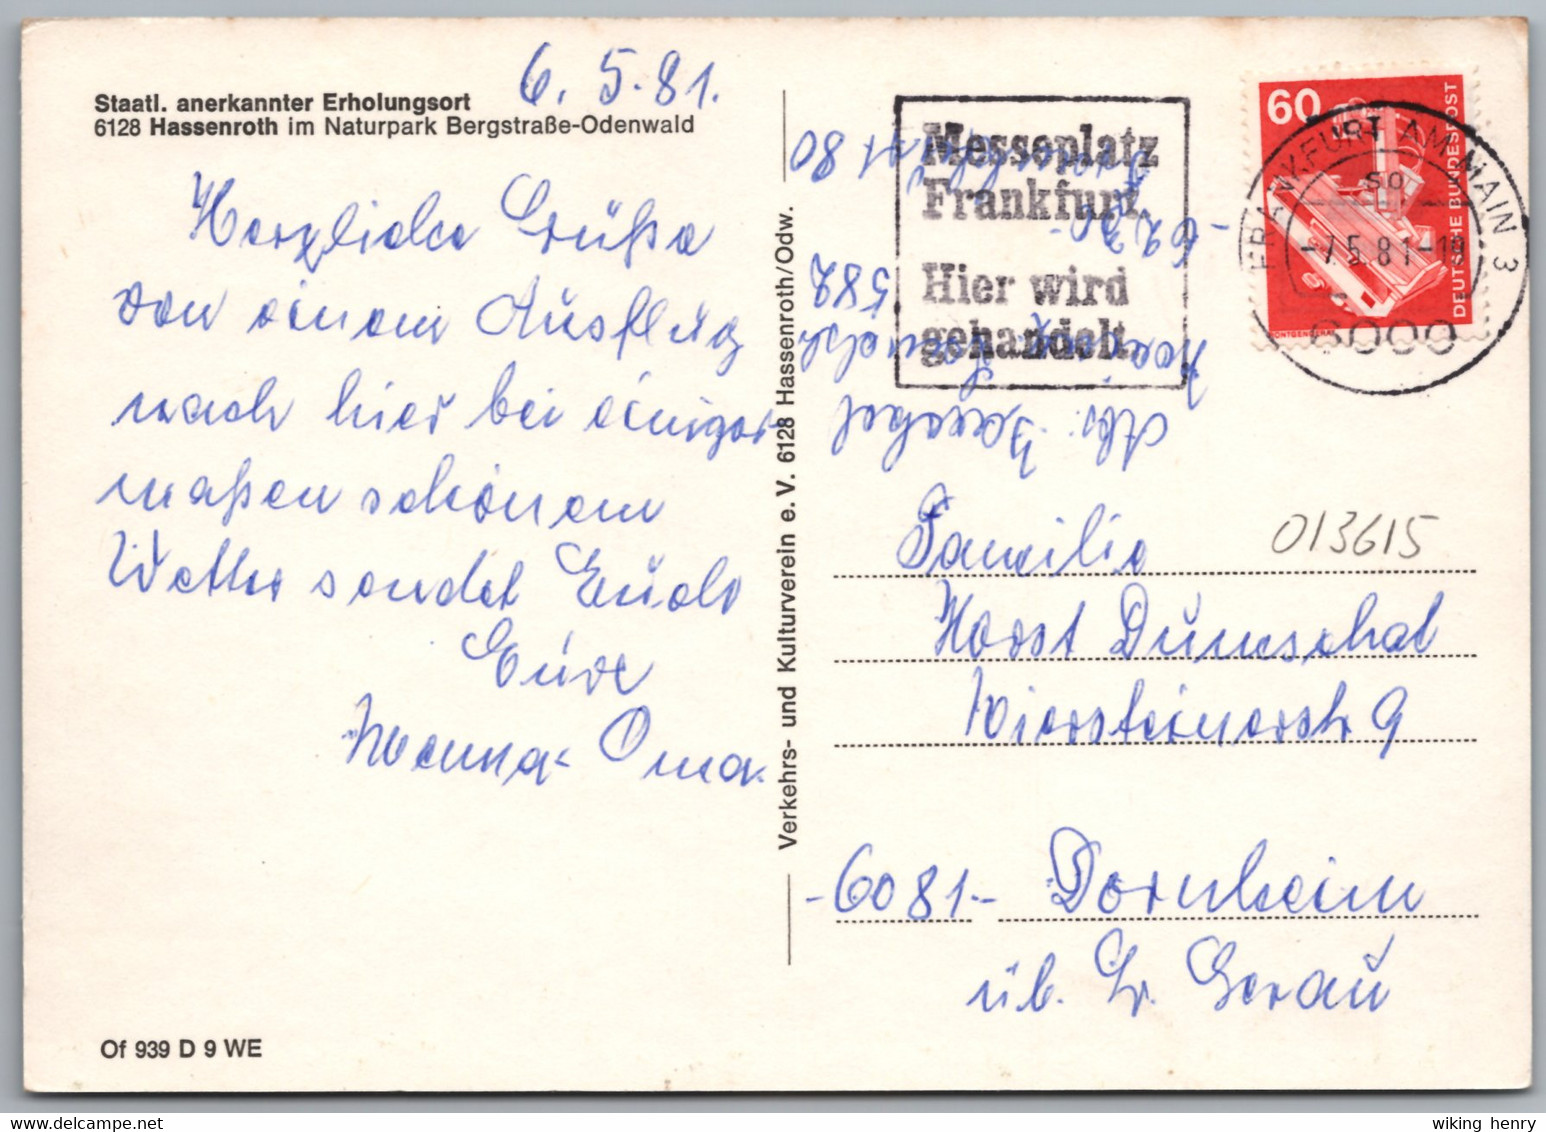 6. 5. 81.
Staatl. anerkannter Erholungsort
6128 Hassenroth im Naturpark Bergstraße-Odenwald
Herzliche Grüße
von einem Ausflug
nach hier bei einiger
maßen schönem
Wetter sendet Euch
Eure
Oma.
Of 939 D 9 WE
Verkehrs- und Kulturverein e. V. 6128 Hassenroth/Odw.
Messeplatz
Frankfurt
Hier wird
gehandelt
60
DEUTSCHE BUNDESPOST
FRANKFURT AM MAIN 3
so
-7.5.81-18
6000
Abs:
582
80
Familie
013615
Horst Dumschat
Niersteinerstr 9
-6081- Dornheim
üb. Gr. Gerau
wiking henry